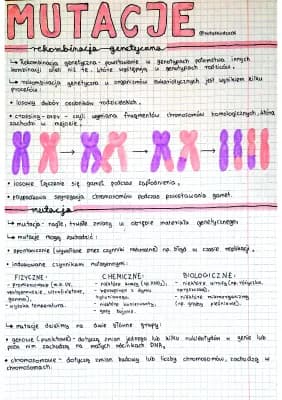 MUTACJE
rekombinacja genetyczna
↳ Rekombinacja genetyczna - powstawanie w genotypach potomstwa innych
kombinacji alleli niż te, które występują w genotypach rodziców.
↳ rekombinacja genetyczna u organizmów eukariotycznych jest wynikiem kilku
procesów:
• losowy dobór osobników rodzicielskich,
• crossing-over - czyli wymiana fragmentów chromosomów homologicznych, która
zachodzi w mejozie,
• losowe łączenie się gamet podczas zapłodnienia,
• niezależna segregacja chromosomów podczas powstawania gamet.
mutacja
↳ mutacja - nagłe, trwałe zmiany w obrębie materiału genetycznego.
↳ mutacje mogą zachodzić:
• spontanicznie (wywołane przez czynniki naturalne) np. błąd w czasie replikacji,
• indukowane czynnikami mutagennymi:
FIZYCZNE: CHEMICZNE: BIOLOGICZNE:
- promieniowanie (m.in. UV,
rentgenowskie, ultrafioletowe,
gamma),
- wysoka temperatura.
- niektóre kwasy (np. HNO₂),
- benzopiren z dymu
tytoniowego,
- niektóre konserwanty,
- gazy bojowe.
- niektóre wirusy (np.
- niektóre mikroorganizmy
(np. grzyby pleśniowe).
↳ mutacje dzielimy na dwie główne grupy:
• genowe (punktowe) - dotyczą zmian jednego lub kilku nukleotydów w genie lub
poza nim zachodzą na małych odcinkach DNA,
• chromosomowe - dotyczą zmian budowy lub liczby chromosomów, zachodzą w
chromosomach: